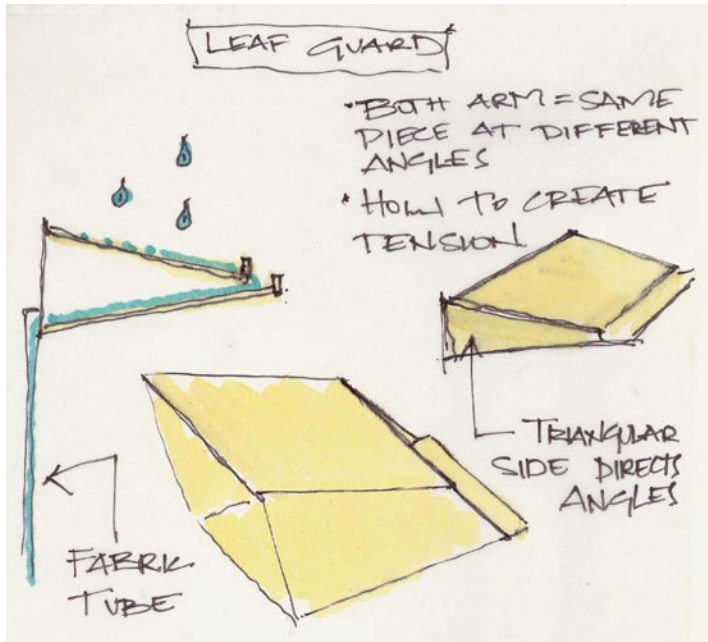 LEAF GUARD
• BOTH ARM = SAME
PIECE AT DIFFERENT
ANGLES
• HOW TO CREATE
TENSION
TRIANGULAR
SIDE DIRECTS
ANGLES
FABRIC
TUBE